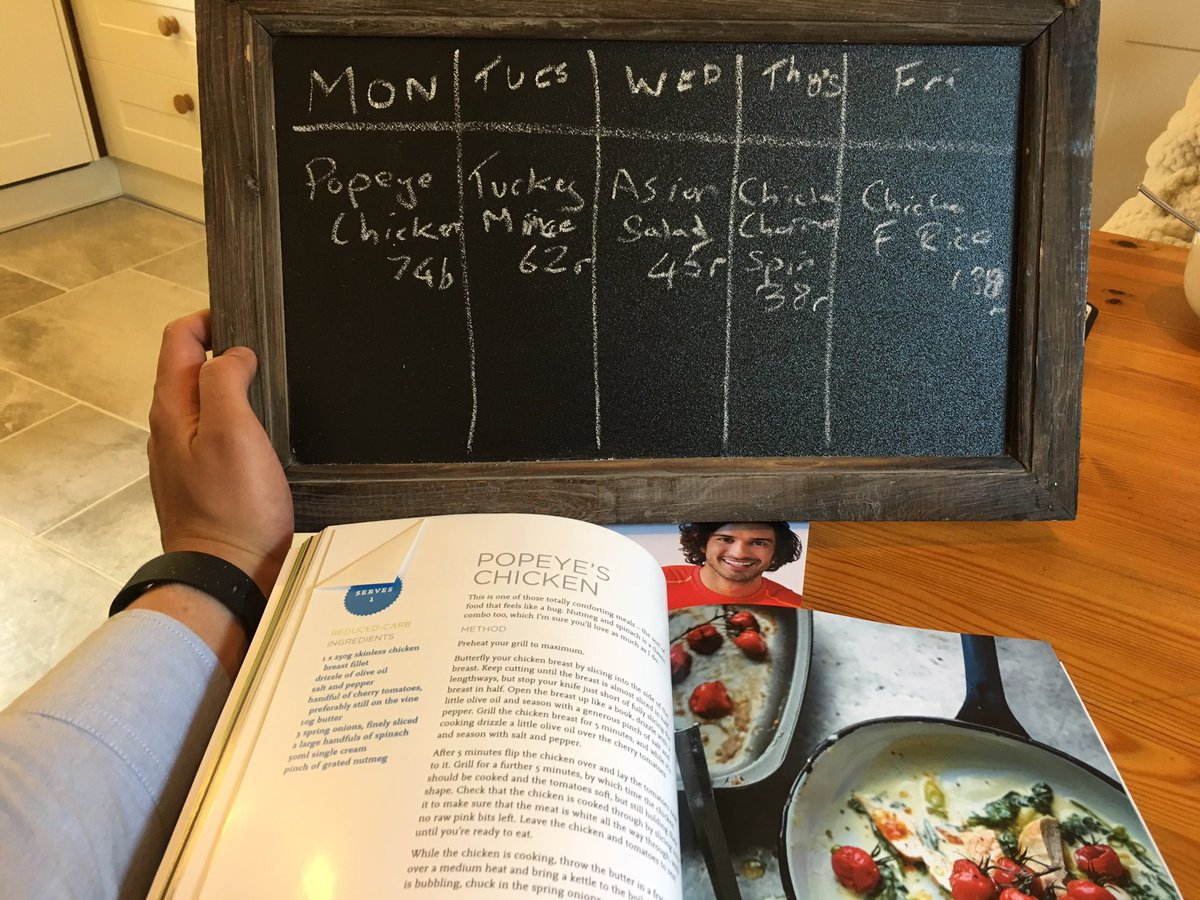 MON TUES WED Thu's Fri
Popeye
Chicken
74b
Tuckey
Mince
62r
Asian
Salad
45r
Spin
38r
F Rice
138
POPEYE'S
CHICKEN
SERVES
1
REDUCED-CARB
INGREDIENTS
1 x 250g skinless chicken
breast fillet
drizzle of olive oil
salt and pepper
handful of cherry tomatoes,
preferably still on the vine
10g butter
3 spring onions, finely sliced
2 large handfuls of spinach
50ml single cream
pinch of grated nutmeg
This is one of those totally comforting meals – the sort of
food that feels like a hug. Nutmeg and spinach is a classic
combo too, which I'm sure you'll love as much as I do.
METHOD
Preheat your grill to maximum.
Butterfly your chicken breast by slicing into the side of the
breast. Keep cutting until the breast is almost sliced in half
lengthways, but stop your knife just short of fully slicing the
breast in half. Open the breast up like a book, drizzle with a
little olive oil and season with a generous pinch of salt and
pepper. Grill the chicken breast for 5 minutes, and while it's
cooking drizzle a little olive oil over the cherry tomatoes
and season with salt and pepper.
After 5 minutes flip the chicken over and lay the tomatoes next
to it. Grill for a further 5 minutes, by which time the chicken
should be cooked and the tomatoes soft, but still holding their
shape. Check that the chicken is cooked through by slicing into
it to make sure that the meat is white all the way through, with
no raw pink bits left. Leave the chicken and tomatoes to rest
until you're ready to eat.
While the chicken is cooking, throw the butter in a
over a medium heat and bring a kettle to the boil.
is bubbling, chuck in the spring onions